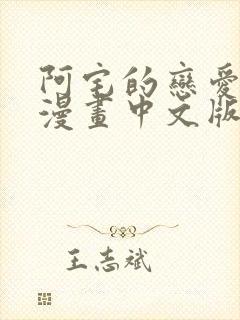 阿宅的戀愛
漫畫中文版
王志斌